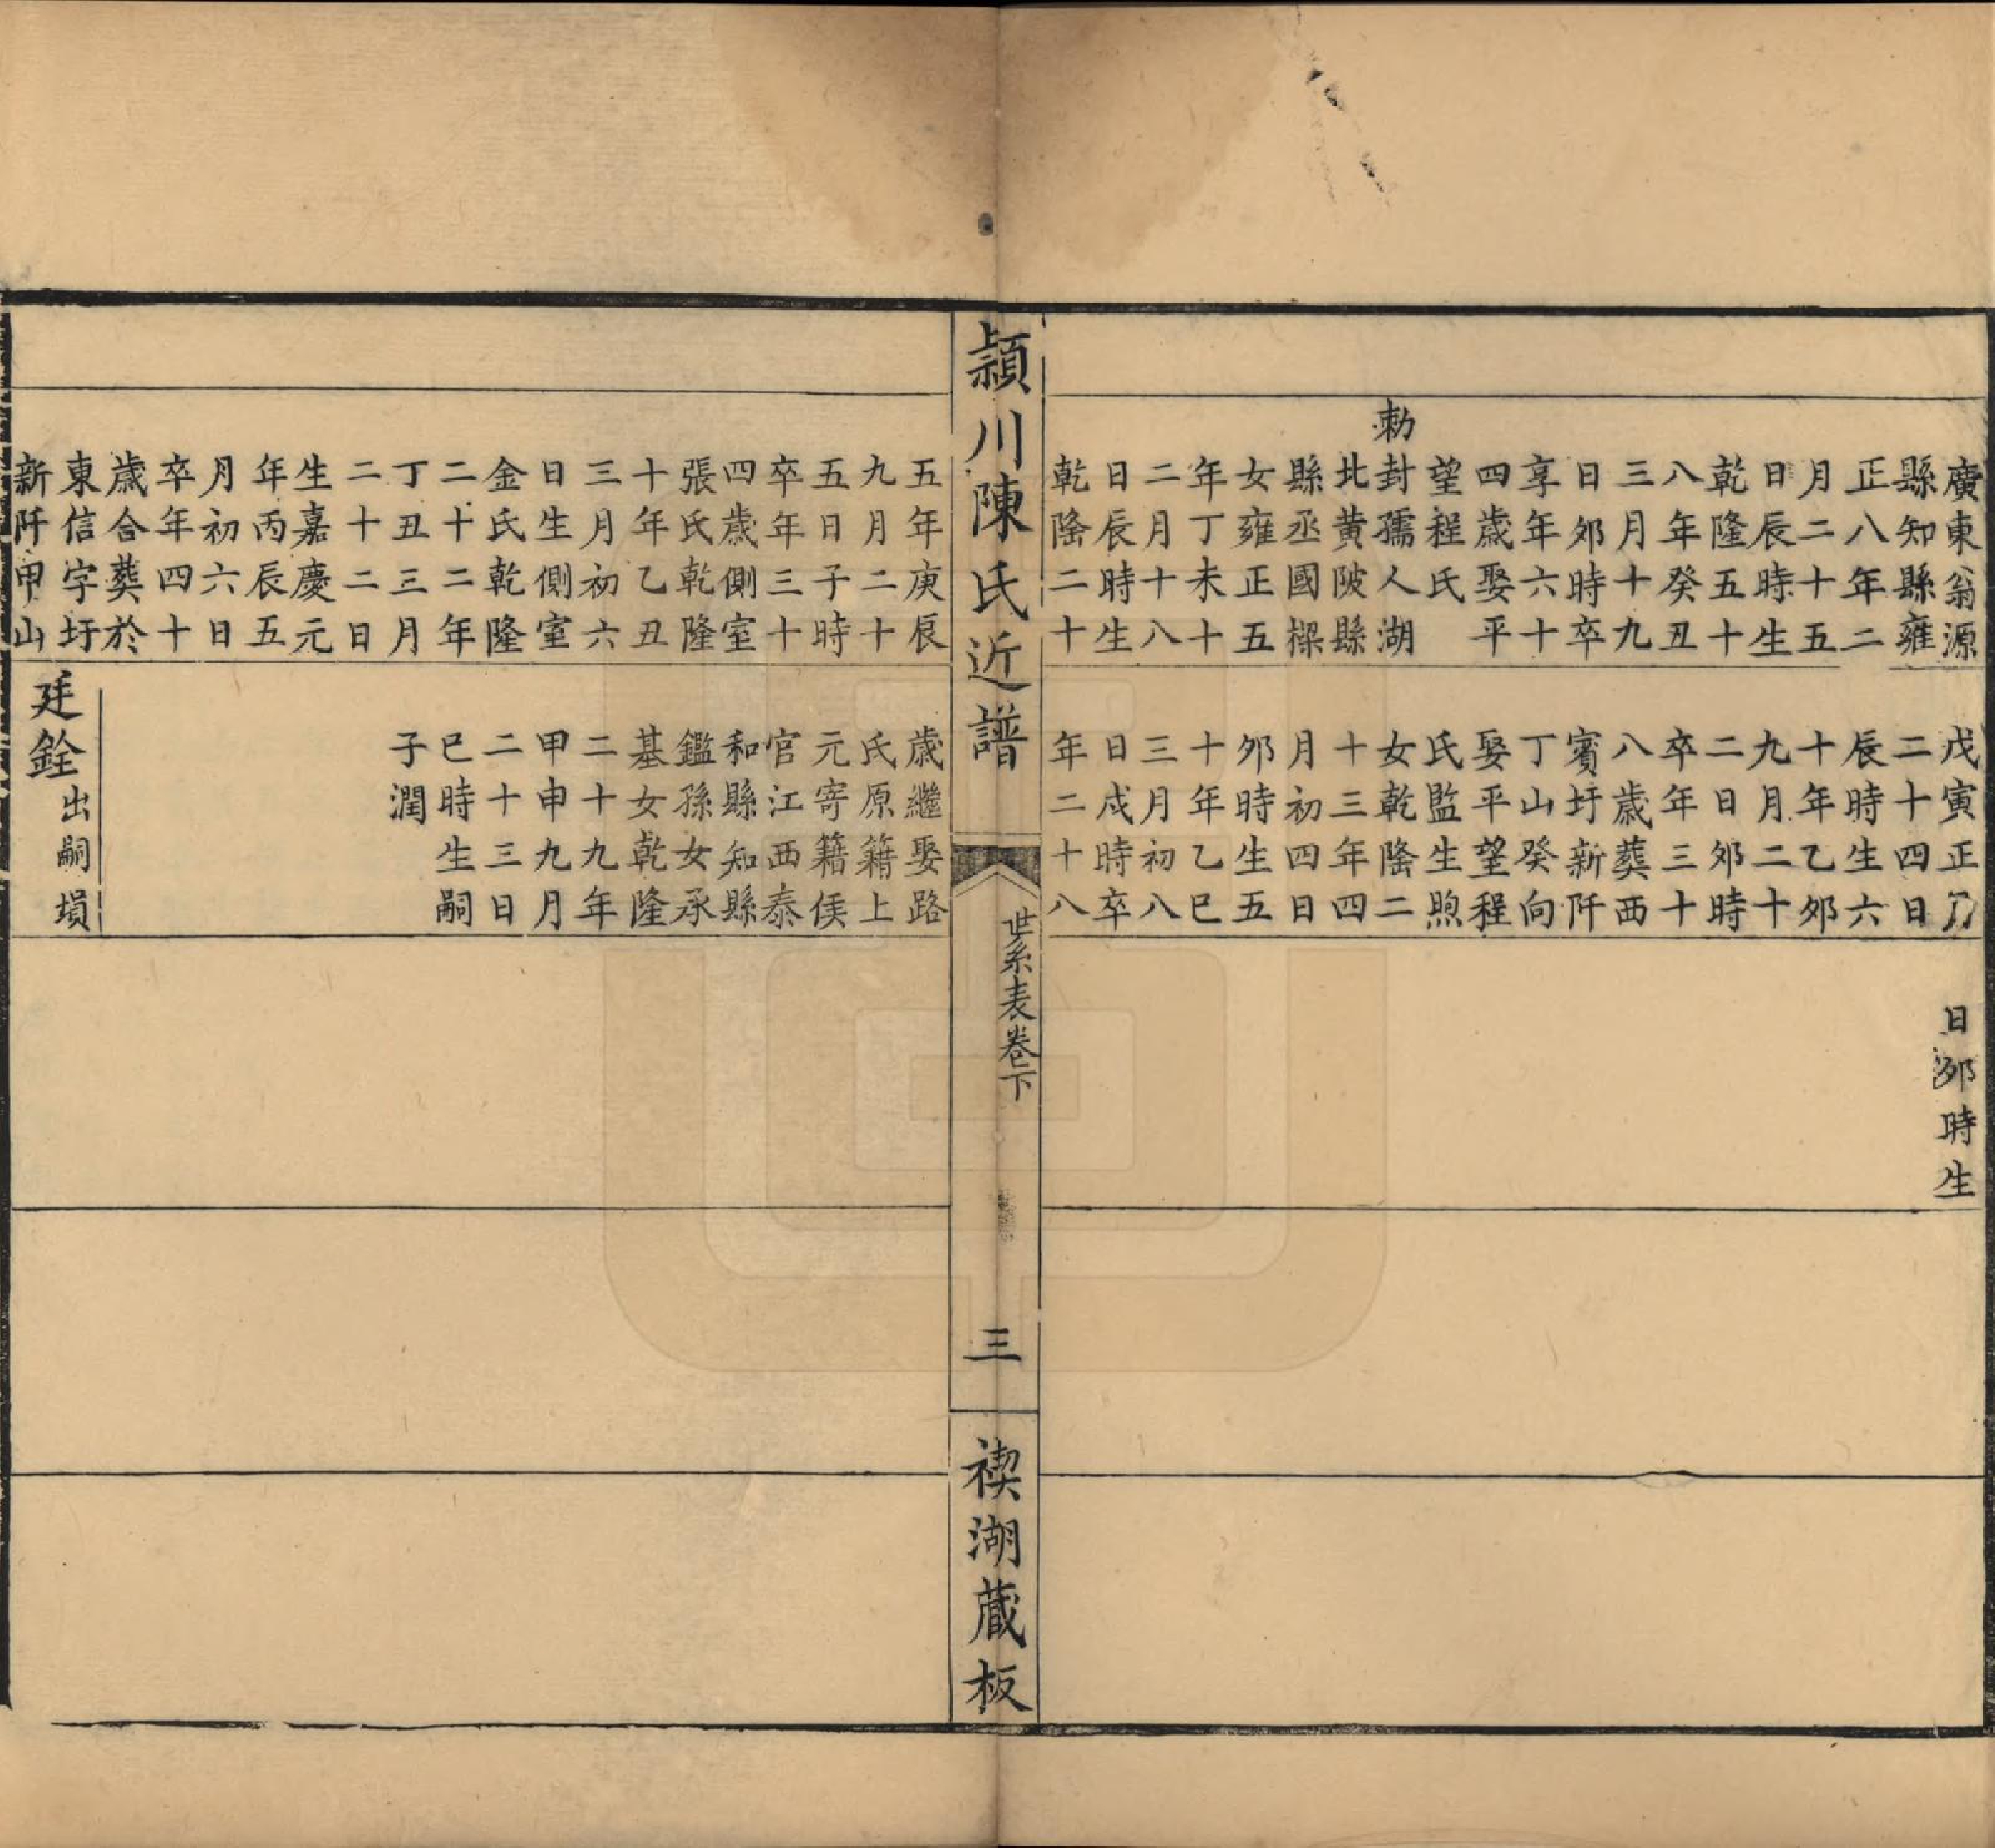 廣東翁源
縣知縣雍
正八年二
月二十五
日辰時生
乾隆五十
八年癸丑
三月十九
日夘時卒
享年六十
四歲娶平
望程氏
勅封孺人湖
北黃陂縣
縣丞國樑
女雍正五
年丁未十
二月十八
日辰時生
乾隆二十
戊寅正月
二十四日
辰時生六
十年乙夘
九月二十
二日夘時
卒年三十
八歲葬西
賓圩新阡
丁山癸向
娶平望程
氏監生煦
女乾隆二
十三年四
月初四日
夘時生五
十年乙巳
三月初八
日戌時卒
年二十八
日夘時生
頴川陳氏近譜
世系表卷下
三
禊湖藏板
五年庚辰
九月二十
五日子時
卒年三十
四歲側室
張氏乾隆
十年乙丑
三月初六
日生側室
金氏乾隆
二十二年
丁丑三月
二十二日
生嘉慶元
年丙辰五
月初六日
卒年四十
歲合葬於
東信字圩
新阡甲山
歲繼娶路
氏原籍上
元寄籍侯
官江西泰
和縣知縣
鑑孫女承
基女乾隆
二十九年
甲申九月
二十三日
巳時生嗣
子潤
廷銓出嗣塤